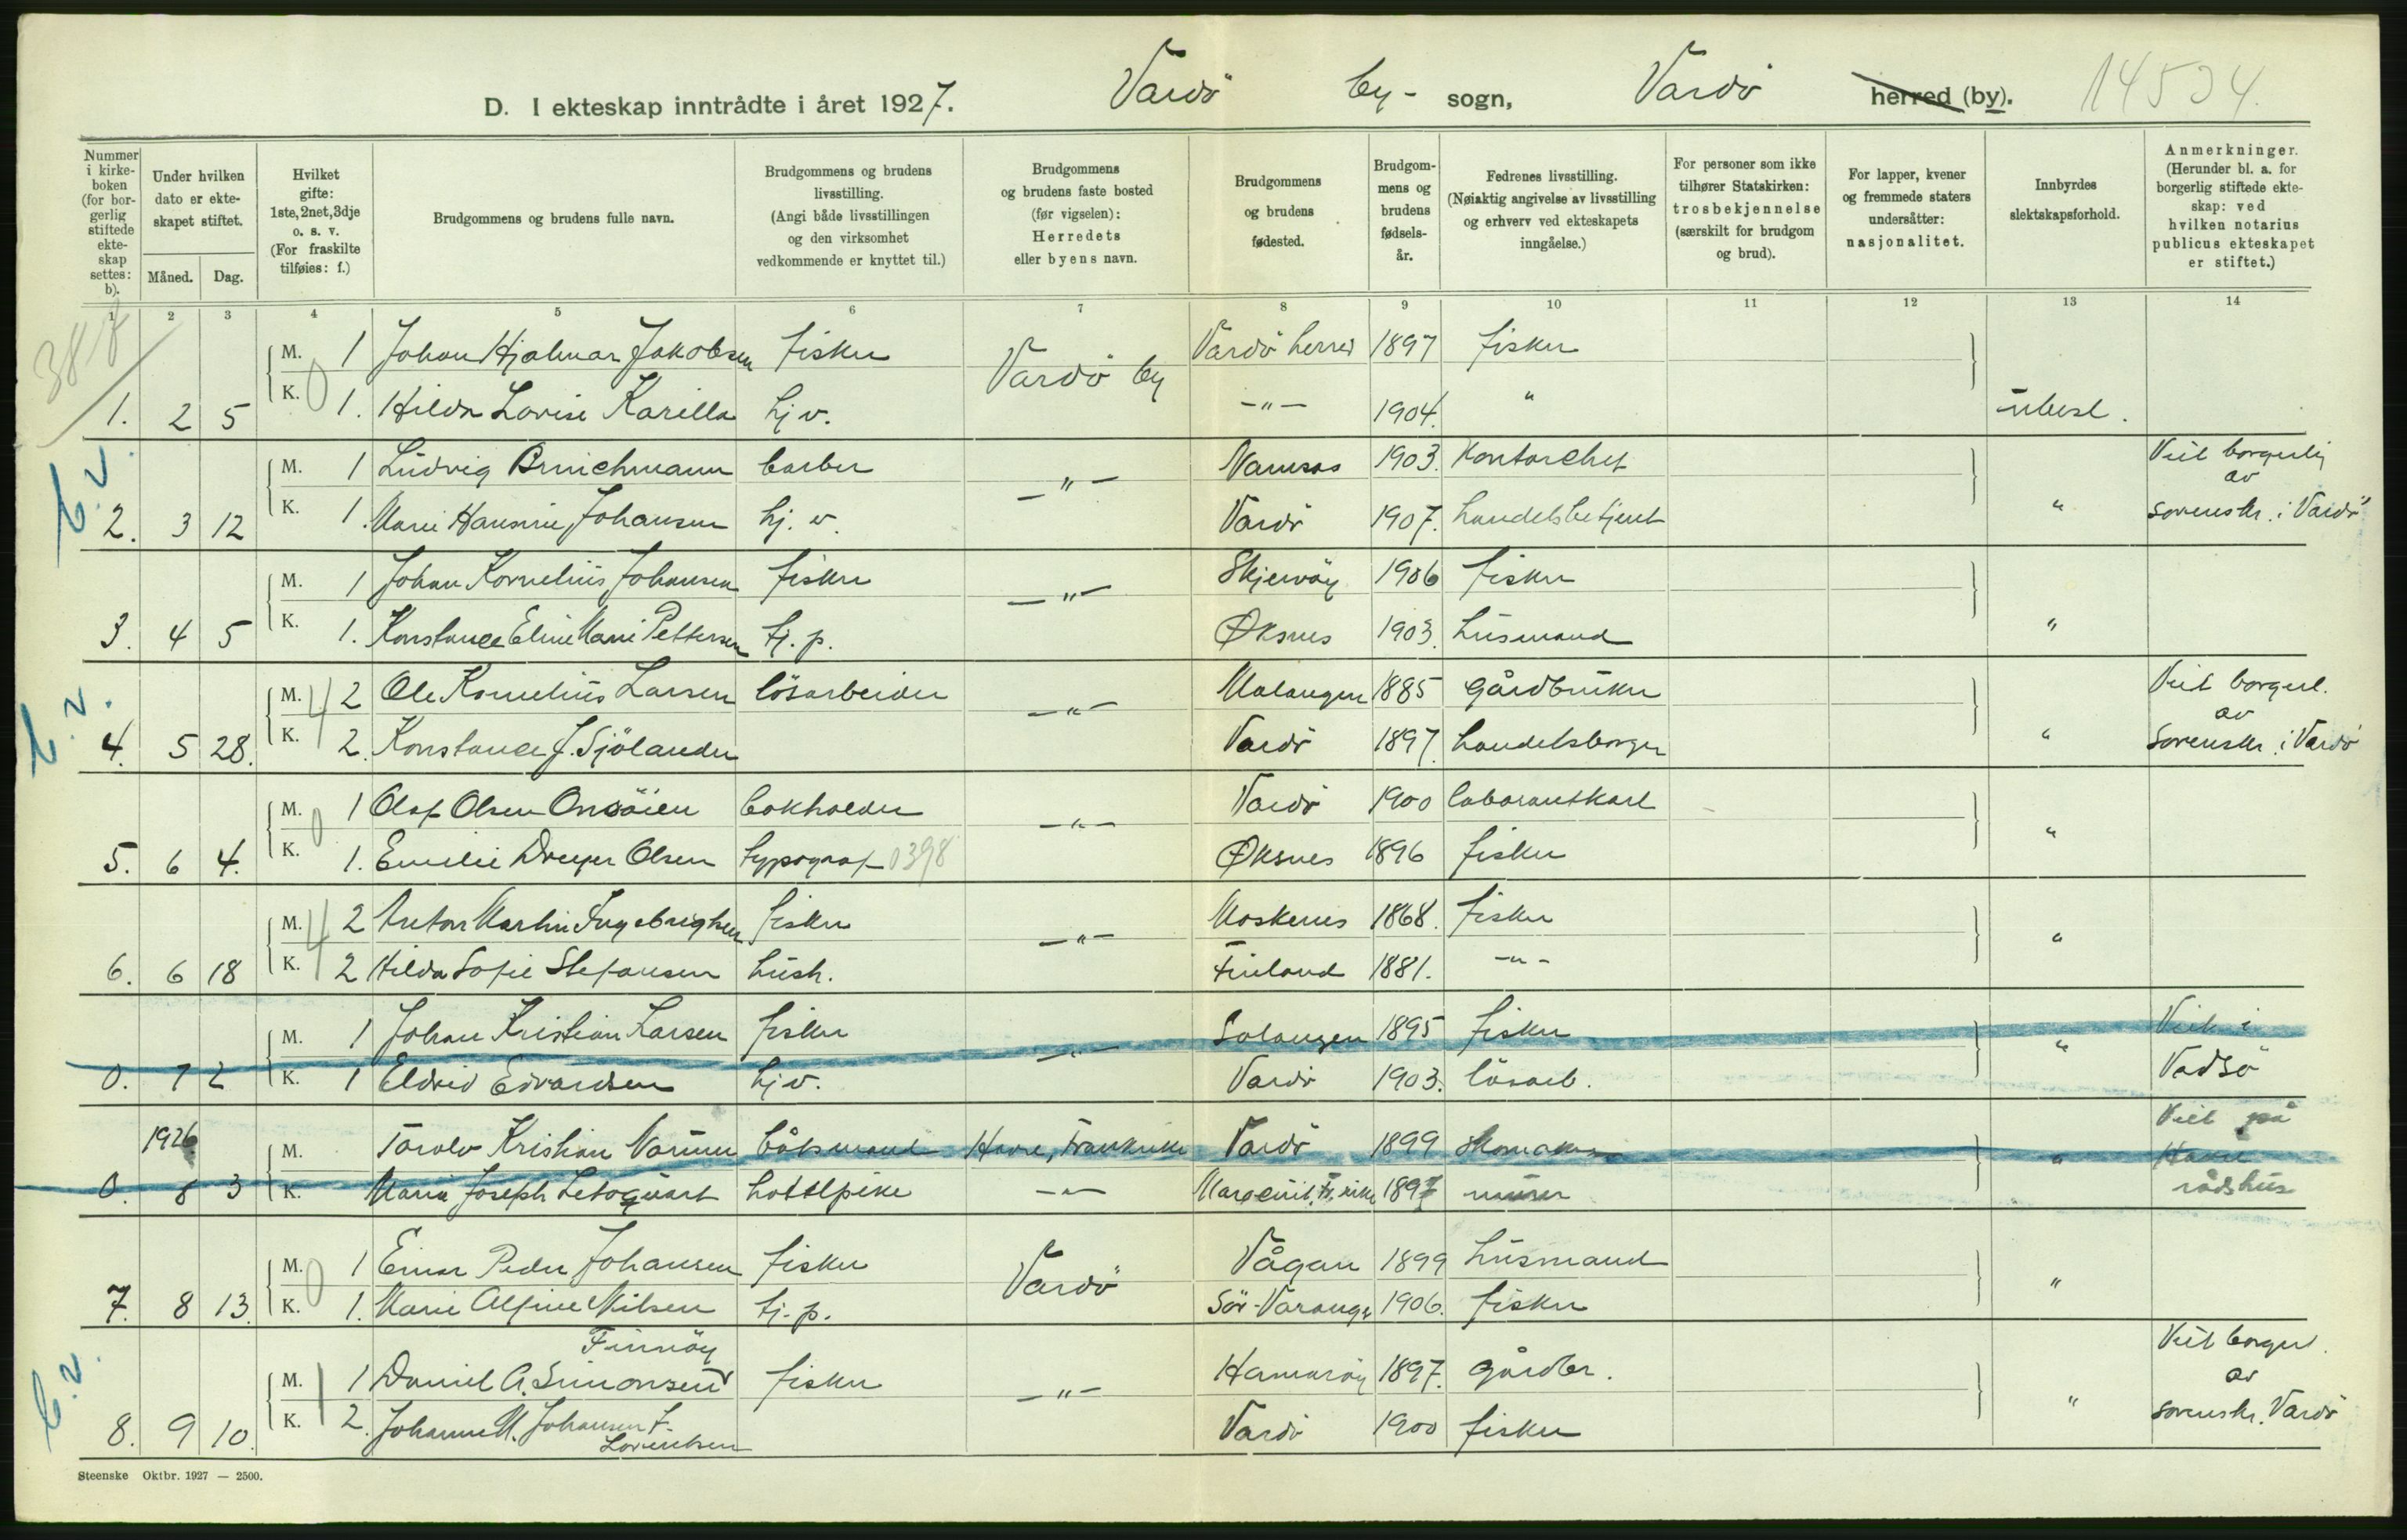 D. I ekteskap inntrådte i året 1927. Vardö by- sogn, Vardö herred (by). 14534.
Nummer i kirkeboken (for borgerlig stiftede ekteskap settes: b).
Under hvilken dato er ekteskapet stiftet.
Måned. Dag.
Hvilket gifte: 1ste, 2net, 3dje o. s. v. (For fraskilte tilføies: f.)
Brudgommens og brudens fulle navn.
Brudgommens og brudens livsstilling. (Angi både livsstillingen og den virksomhet vedkommende er knyttet til.)
Brudgommens og brudens faste bosted (før vigselen): Herredets eller byens navn.
Brudgommens og brudens fødested.
Brudgommens og brudens fødselsår.
Fedrenes livsstilling. (Nøiaktig angivelse av livsstilling og erhverv ved ekteskapets inngåelse.)
For personer som ikke tilhører Statskirken: trosbekjennelse (særskilt for brudgom og brud).
For lapper, kvener og fremmede staters undersåtter: nasjonalitet.
Innbyrdes slektskapsforhold.
Anmerkninger. (Herunder bl. a. for borgerlig stiftede ekteskap: ved hvilken notarius publicus ekteskapet er stiftet.)
1 2 3 4 5 6 7 8 9 10 11 12 13 14
M. 1 Johan Hjalmar Jakobsen fisker Vardö by Vardö herred 1897 fisker
1. 2 5 K. 1. Hilda Lovise Karilla hj v. -"- 1904. " ubesl.
M. 1 Ludvig Brüchmann barber -"- Namsos 1903. Kontorchef Viet borgerlig av
2. 3 12 K. 1. Marie Hansine Johansen hj. v. Vardö 1907. handelsbetjent " sorenskr. i Vardö
M. 1 Johan Kornelius Johansen fisker -"- Skjervöy 1906 fisker
3. 4 5 K. 1. Konstance Eline Marie Pettersen tj. p. Øksnes 1903. husmand "
M. 2 Ole Kornelius Larsen lösarbeider -"- Malangen 1885 gårdbruker Viet borgerl. av
4. 5 28. K. 2. Konstance J. Sjölander Vardö 1897. handelsborger " Sorenskr. i Vardö
M. 1 Olaf Olsen Onsöien bokholder -"- Vardö 1900 laborantkarl
5. 6 4. K. 1. Emilie Dreyer Olsen typograf 0398 Øksnes 1896 fisker "
M. 2 Anton Martin Ingebrigtsen fisker -"- Moskenes 1868. fisker
6. 6 18 K. 2 Hilda Sofie Stefansen hush. Finland 1881. -"- "
M. 1 Johan Kristian Larsen fisker -"- Salangen 1895 fisker Viet i
0. 7 2 K. 1 Eldrid Edvardsen hj v. Vardö 1903. lösarb. " Vadsö
1926 M. Torolv Kristian båtsmand Havre, Frankrike Vardö 1899 skomaker Viet på Havre
0. 8 3 K. Marie Joseph hotelpike -"- 1897 murer " rådshus
M. 1 Einar Peder Johansen fisker Vardö Vågan 1899 husmand
7. 8 13. K. 1. Marie Alfine Nilsen tj. p. Sör-Varanger 1906. fisker "
Finnöy
M. 1 Daniel A. Simonsen fisker -"- Hamaröy 1897. gårdbr. Viet borgerl. av
8. 9 10. K. 2. Johanne M. Johansen f. Lorentsen Vardö 1900 fisker " sorenskr. Vardö
Steenske Oktbr. 1927 — 2500.